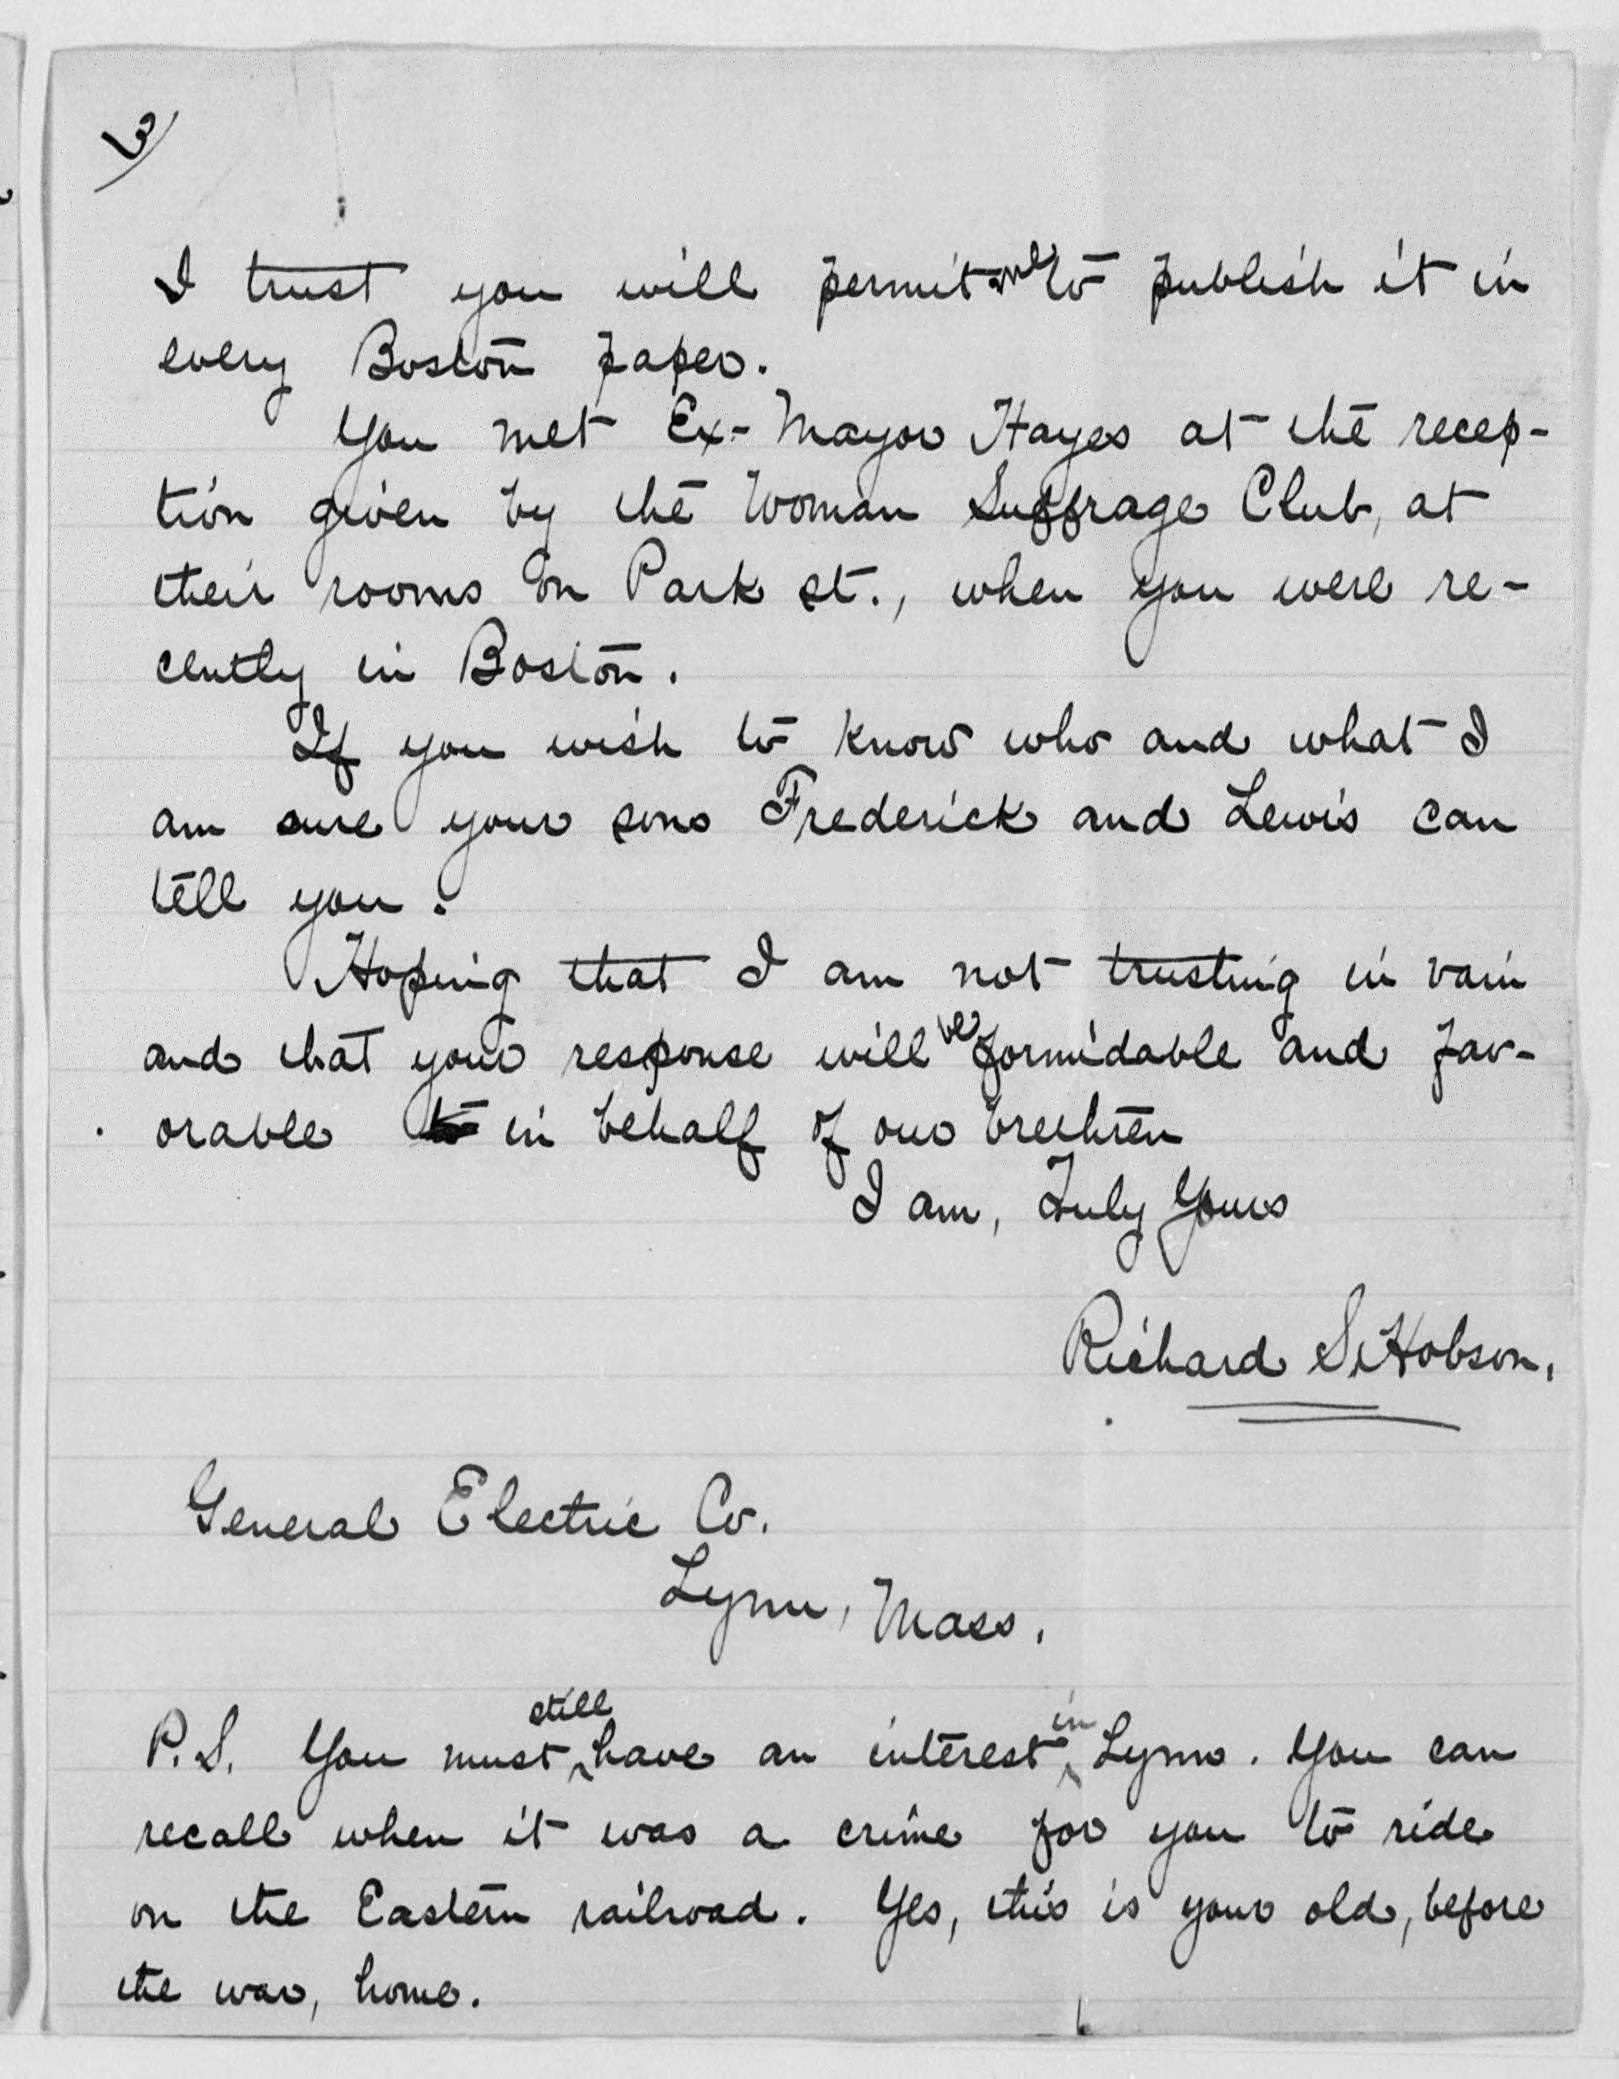 3/
I trust you will permit me to publish it in
every Boston paper.
You met Ex-Mayor Hayes at the recep-
tion given by the Woman Suffrage Club, at
their rooms on Park st., when you were re-
cently in Boston.
If you wish to know who and what I
am sure your sons Frederick and Lewis can
tell you.
Hoping that I am not trusting in vain
and that your response will be formidable and fav-
orable to in behalf of our brethren
I am, Truly Yours
Richard S. Hobson.
General Electric Co.
Lynn, Mass.
P.S. You must still have an interest in Lynn. You can
recall when it was a crime for you to ride
on the Eastern railroad. Yes, this is your old, before
the war, home.